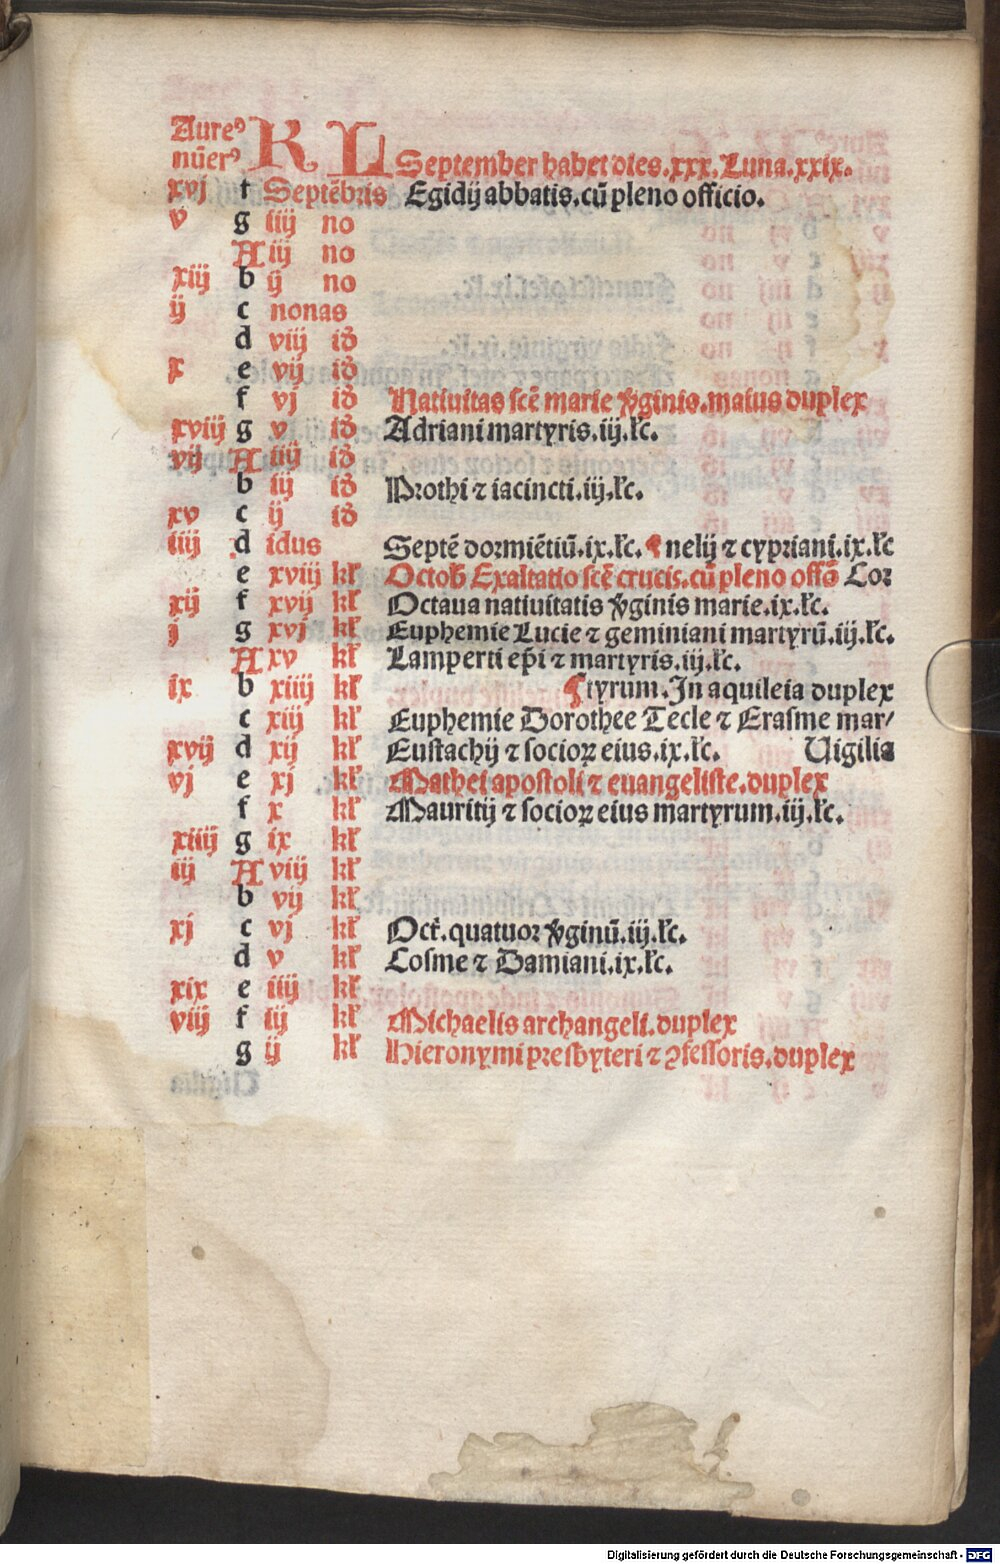 Aureꝰ K L
nūerꝰ September habet dies.xxx.Luna.xxix.
xvj f Septēbris Egidij abbatis.cū pleno officio.
v g iiij no
A iij no
xiij b ij no
ij c nonas
d viij id
x e vij id
f vj id Natiuitas scē marie v̄ginis.maius duplex
xviij g v id Adriani martyris.iij.lc.
vij A iiij id
b iij id Prothi ⁊ iacincti.iij.lc.
xv c ij id
iiij d idus Septē dormiētiū.ix.lc. ¶ nelij ⁊ cypriani.ix.lc
e xviij kl Octob Exaltatio scē crucis.cū pleno offō Cor
xij f xvij kl Octaua natiuitatis v̄ginis marie.ix.lc.
j g xvj kl Euphemie Lucie ⁊ geminiani martyrū.iij.lc.
A xv kl Lamperti ep̄i ⁊ martyris.iij.lc.
ix b xiiij kl ¶ tyrum.In aquileia duplex
c xiij kl Euphemie Dorothee Tecle ⁊ Erasme mar/
xvij d xij kl Eustachij ⁊ socioꝝ eius.ix.lc. Uigilia
vj e xj kl Mathei apostoli ⁊ euangeliste.duplex
f x kl Mauritij ⁊ socioꝝ eius martyrum.iij.lc.
xiiij g ix kl
iij A viij kl
b vij kl
xj c vj kl Oct.quatuor v̄ginū.iij.lc.
d v kl Cosme ⁊ Damiani.ix.lc.
xix e iiij kl
viij f iij kl Michaelis archangeli.duplex
g ij kl Hieronymi presbyteri ⁊ ꝯfessoris.duplex
Digitalisierung gefördert durch die Deutsche Forschungsgemeinschaft - DFG